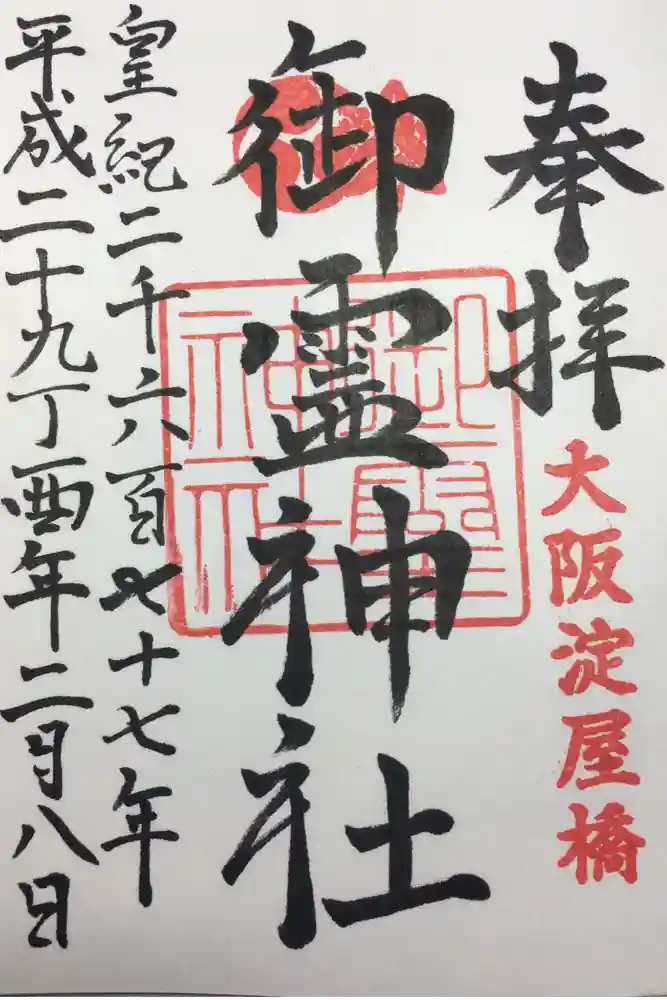 奉拝
大阪淀屋橋
御霊神社
御霊神社
皇紀二千六百七十七年
平成二十九丁酉年二月八日